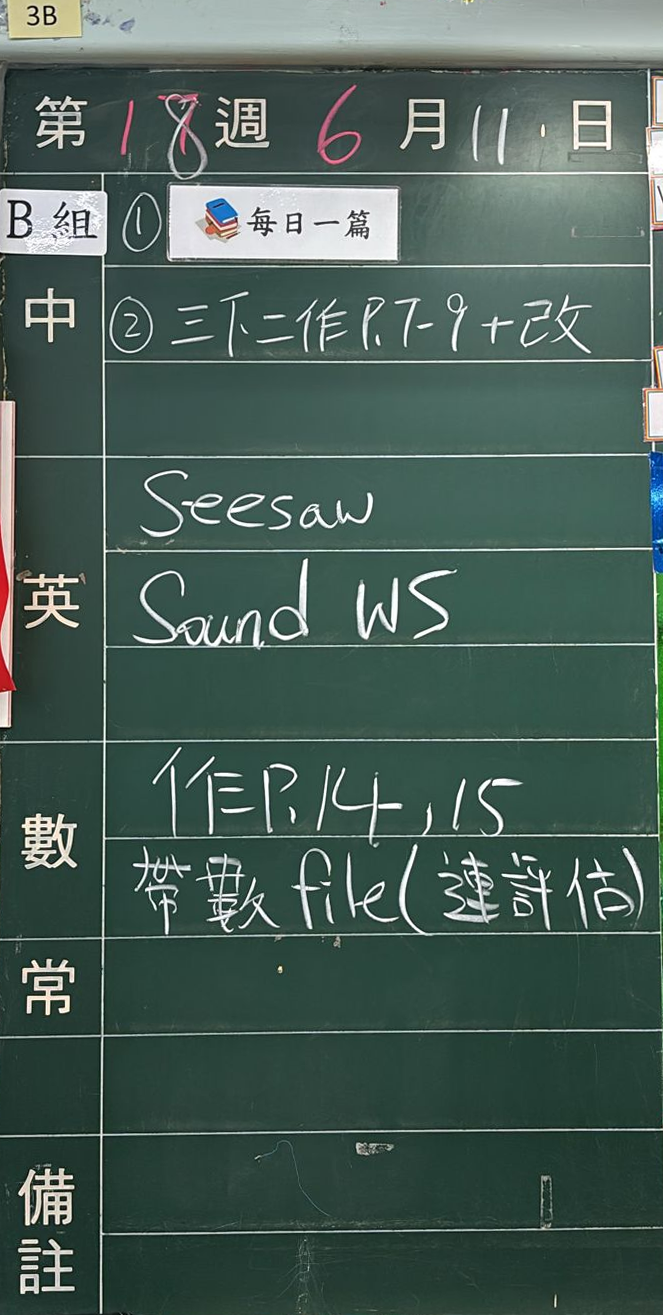 3B
第18週 6月11日
B組 ① 每日一篇
中 ② 三下二作P.7-9+改
Seesaw
英 Sound WS
作P.14,15
數 帶數file(連評估)
常
備註